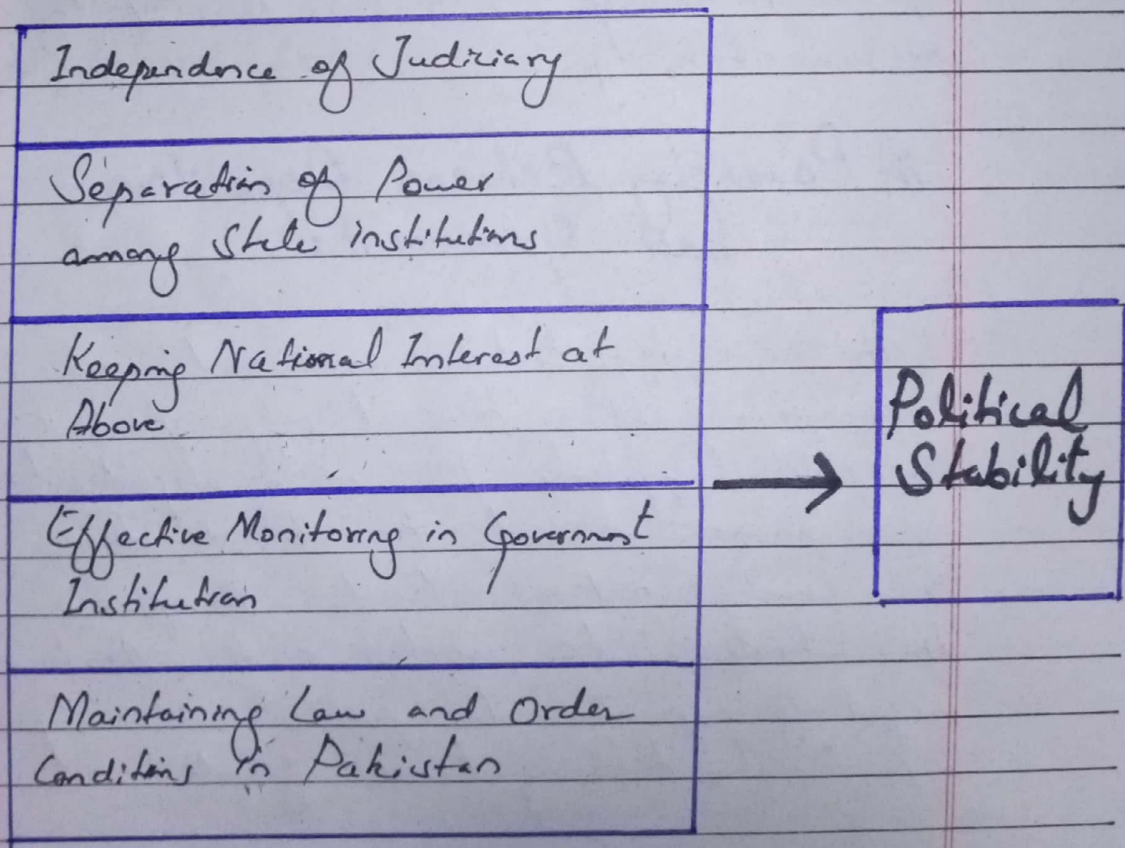 Independence of Judiciary
Separation of Power
among State institutions
Keeping National Interest at
Above
Effective Monitoring in Government
Institution
Maintaining Law and Order
Conditions in Pakistan
Political
Stability